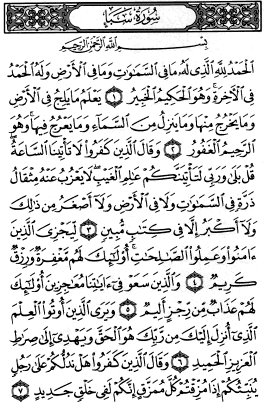 سُورَةُ سَبَإٍ
بِسْمِ اللَّهِ الرَّحْمَٰنِ الرَّحِيمِ
الْحَمْدُ لِلَّهِ الَّذِي لَهُ مَا فِي السَّمَاوَاتِ وَمَا فِي الْأَرْضِ وَلَهُ الْحَمْدُ
فِي الْآخِرَةِ وَهُوَ الْحَكِيمُ الْخَبِيرُ ١ يَعْلَمُ مَا يَلِجُ فِي الْأَرْضِ
وَمَا يَخْرُجُ مِنْهَا وَمَا يَنزِلُ مِنَ السَّمَاءِ وَمَا يَعْرُجُ فِيهَا وَهُوَ
الرَّحِيمُ الْغَفُورُ ٢ وَقَالَ الَّذِينَ كَفَرُوا لَا تَأْتِينَا السَّاعَةُ
قُلْ بَلَىٰ وَرَبِّي لَتَأْتِيَنَّكُمْ عَالِمِ الْغَيْبِ لَا يَعْزُبُ عَنْهُ مِثْقَالُ
ذَرَّةٍ فِي السَّمَاوَاتِ وَلَا فِي الْأَرْضِ وَلَا أَصْغَرُ مِن ذَٰلِكَ
وَلَا أَكْبَرُ إِلَّا فِي كِتَابٍ مُّبِينٍ ٣ لِّيَجْزِيَ الَّذِينَ
آمَنُوا وَعَمِلُوا الصَّالِحَاتِ أُولَٰئِكَ لَهُم مَّغْفِرَةٌ وَرِزْقٌ
كَرِيمٌ ٤ وَالَّذِينَ سَعَوْ فِي آيَاتِنَا مُعَاجِزِينَ أُولَٰئِكَ
لَهُمْ عَذَابٌ مِّن رِّجْزٍ أَلِيمٌ ٥ وَيَرَى الَّذِينَ أُوتُوا الْعِلْمَ
الَّذِي أُنزِلَ إِلَيْكَ مِن رَّبِّكَ هُوَ الْحَقَّ وَيَهْدِي إِلَىٰ صِرَاطِ
الْعَزِيزِ الْحَمِيدِ ٦ وَقَالَ الَّذِينَ كَفَرُوا هَلْ نَدُلُّكُمْ عَلَىٰ رَجُلٍ
يُنَبِّئُكُمْ إِذَا مُزِّقْتُمْ كُلَّ مُمَزَّقٍ إِنَّكُمْ لَفِي خَلْقٍ جَدِيدٍ ٧